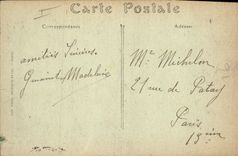 Carte Postale
Correspondance
Adresse
amitiés Sincères
Madeleine
Mr Michelon
21 rue de Patay
Paris
13 ème